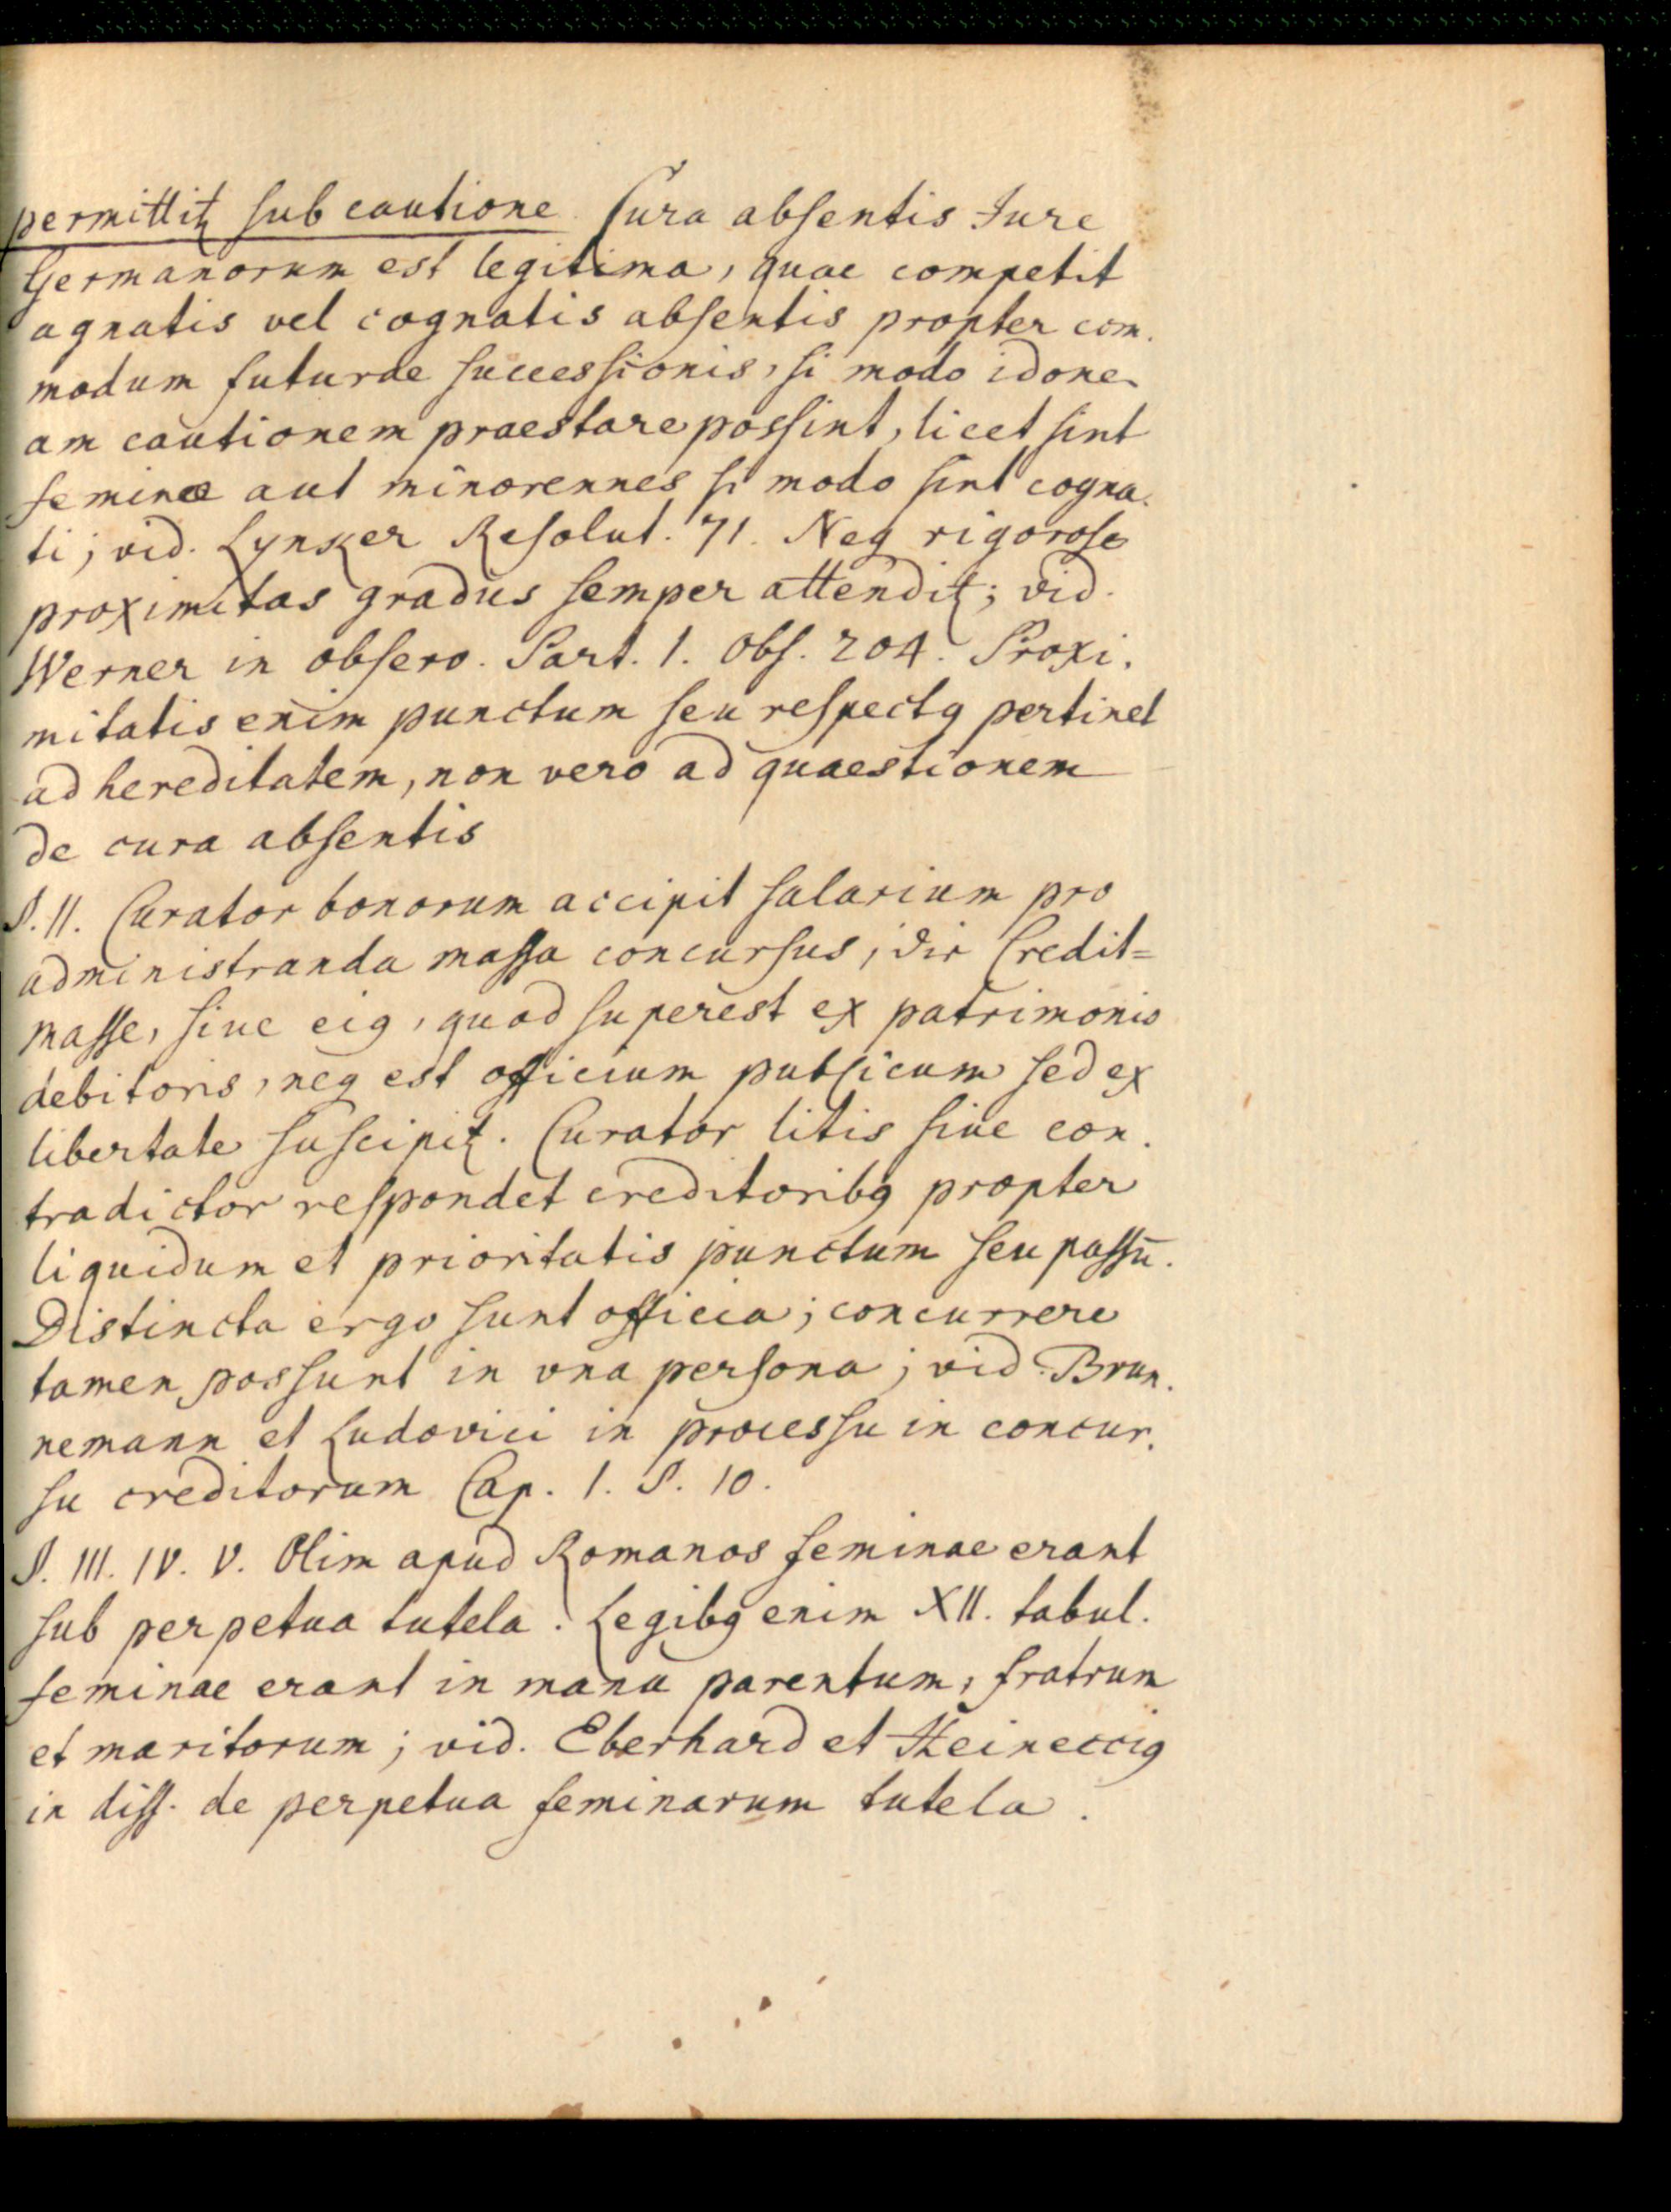 permittitꝛ sub cautione. Cura absentis Jure
Germanorum est legitima, quae competit
agnatis vel cognatis absentis propter com-
modum futurae successionis, si modo idone-
am cautionem praestare possint, licet sint
feminæ aut minorennes si modo sint cogna-
ti; vid. Lynker Resolut. 71. Neq rigorose
proximitas gradus semper attenditꝛ; vid.
Werner in observ. Part. 1. Obs. 204. Proxi-
mitatis enim punctum seu respectꝰ pertinet
ad hereditatem, non vero ad quaestionem
de cura absentis
§. II. Curator bonorum accipit salarium pro
administranda massa concursus, die Credit=
masse, siue eiꝰ, quod superest ex patrimonio
debitoris, neq est officium publicum sed ex
libertate suscipitꝛ. Curator litis siue con-
tradictor respondet creditoribꝰ propter
liquidum et prioritatis punctum seu passū.
Distincta ergo sunt officia; concurrere
tamen possunt in vna persona; vid. Brun-
nemann et Ludovici in processu in concur-
su creditorum Cap. 1. §. 10.
§. III. IV. V. Olim apud Romanos feminae erant
sub perpetua tutela. Legibꝰ enim XII. tabul.
feminae erant in manu parentum, fratrum
et maritorum; vid. Eberhard et Heinecciꝰ
in diss. de perpetua feminarum tutela.